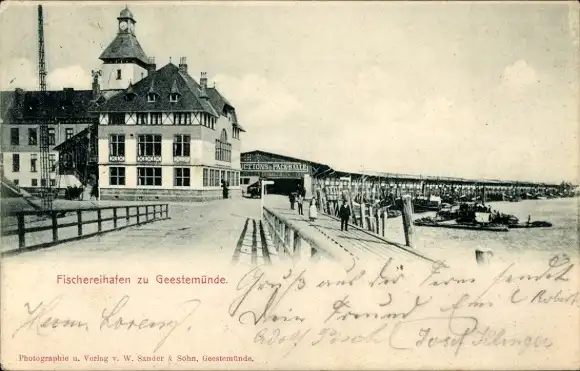 AUCTIONS & PACKHALLE
Fischereihafen zu Geestemünde.
Gruß aus der Ferne sendet
Herrn Lorenz
Dein Freund Emil Robert
Adolf Josef
Photographie u. Verlag v. W. Sander & Sohn, Geestemünde.